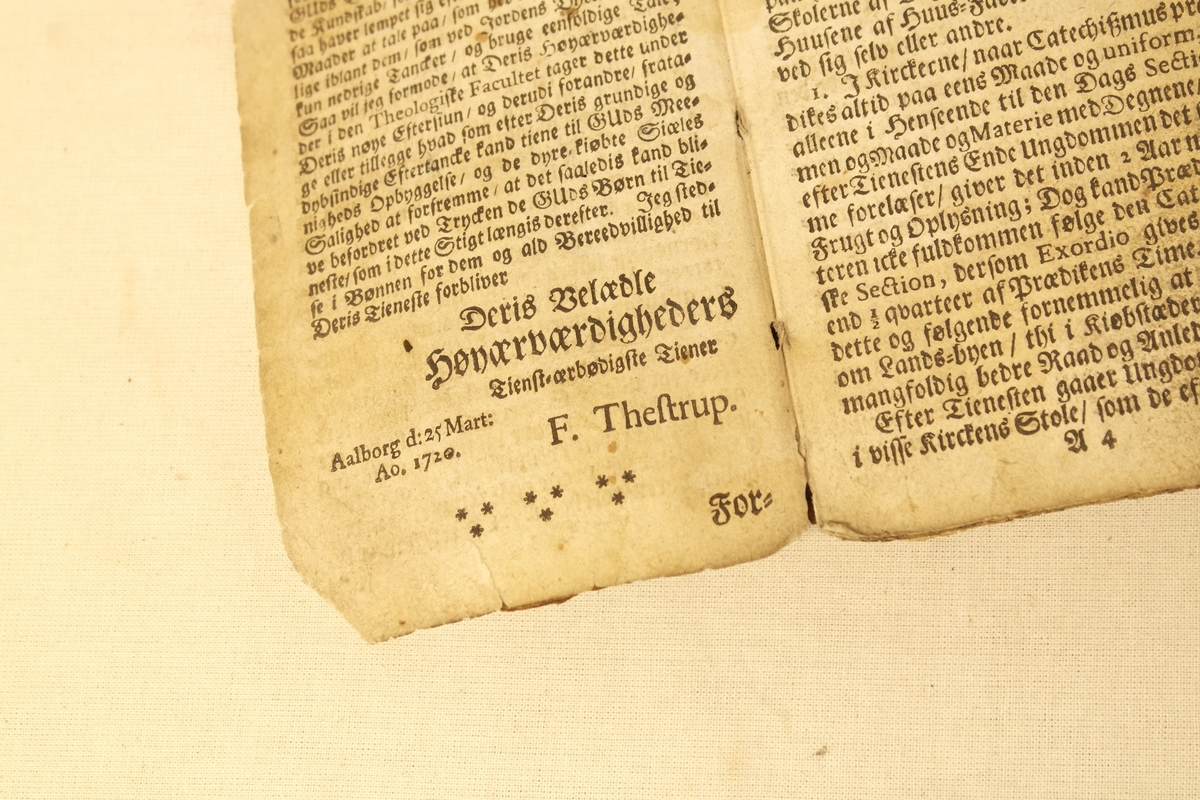 GUds
de Kundskab/
saa haver lempet sig
Maader at tale paa/ som
lige iblant dem/ som ved Jordens
kun nedrige Tancker/ og bruge eenfoldige Tale;
Saa vil jeg formode/ at Deris Høyærværdighe-
der i den Theologiske Facultet tager dette under
Deris nøye Eftersiun/ og derudi forandre/ frata-
ge eller tillegge hvad som efter Deris grundige og
dybsindige Eftertancke kand tiene til GUds Mee-
nigheds Opbyggelse/ og de dyre-kiøbte Siæles
Salighed at forfremme/ at det saaledis kand bli-
ve befordret ved Trycken de GUds Børn til Tie-
neste/ som i dette Stigt længis derefter. Jeg sted-
se i Bønnen for dem og ald Bereedvillighed til
Deris Tieneste forbliver
Deris Velædle
Høyærværdigheders
Tienst-ærbødigste Tiener
Aalborg d: 25 Mart:
Ao. 1720.
F. Thestrup.
* * * * * *
* * *
For-
Skolerne af
Huusene af Huus-
ved sig selv eller andre.
1. J Kirckerne/ naar Catechißmus
dikes altid paa eens Maade og uniform
alleene i Henseende til den Dags
men og Maade og Materie med Degnene
efter Tienestens Ende Ungdommen det
me forelæser/ giver det inden 2 Aar
Frugt og Oplysning; Dog kand
teren icke fuldkommen følge den
ske Section, dersom Exordio
end ½ qvarteer af Prædikens Time
dette og følgende fornemmelig at
om Lands-byen/ thi i
mangfoldig bedre Raad og
Efter Tienesten gaaer
i visse Kirckens Stole/ som de
A 4